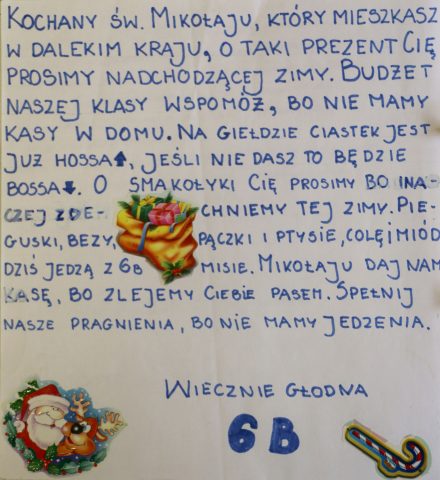 KOCHANY ŚW. MIKOŁAJU, KTÓRY MIESZKASZ
W DALEKIM KRAJU, O TAKI PREZENT CIĘ
PROSIMY NADCHODZĄCEJ ZIMY. BUDŻET
NASZEJ KLASY WSPOMÓŻ, BO NIE MAMY
KASY W DOMU. NA GIEŁDZIE CIASTEK JEST
JUŻ HOSSA⬆, JEŚLI NIE DASZ TO BĘDZIE
BOSSA⬇. O SMAKOŁYKI CIĘ PROSIMY BO INA-
CZEJ ZDE- CHNIEMY TEJ ZIMY. PIE-
GUSKI, BEZY, PĄCZKI I PTYSIE, COLĘ I MIÓD
DZIŚ JEDZĄ Z 6B MISIE. MIKOŁAJU DAJ NAM
KASĘ, BO ZLEJEMY CIEBIE PASEM. SPEŁNIJ
NASZE PRAGNIENIA, BO NIE MAMY JEDZENIA.
WIECZNIE GŁODNA
6B